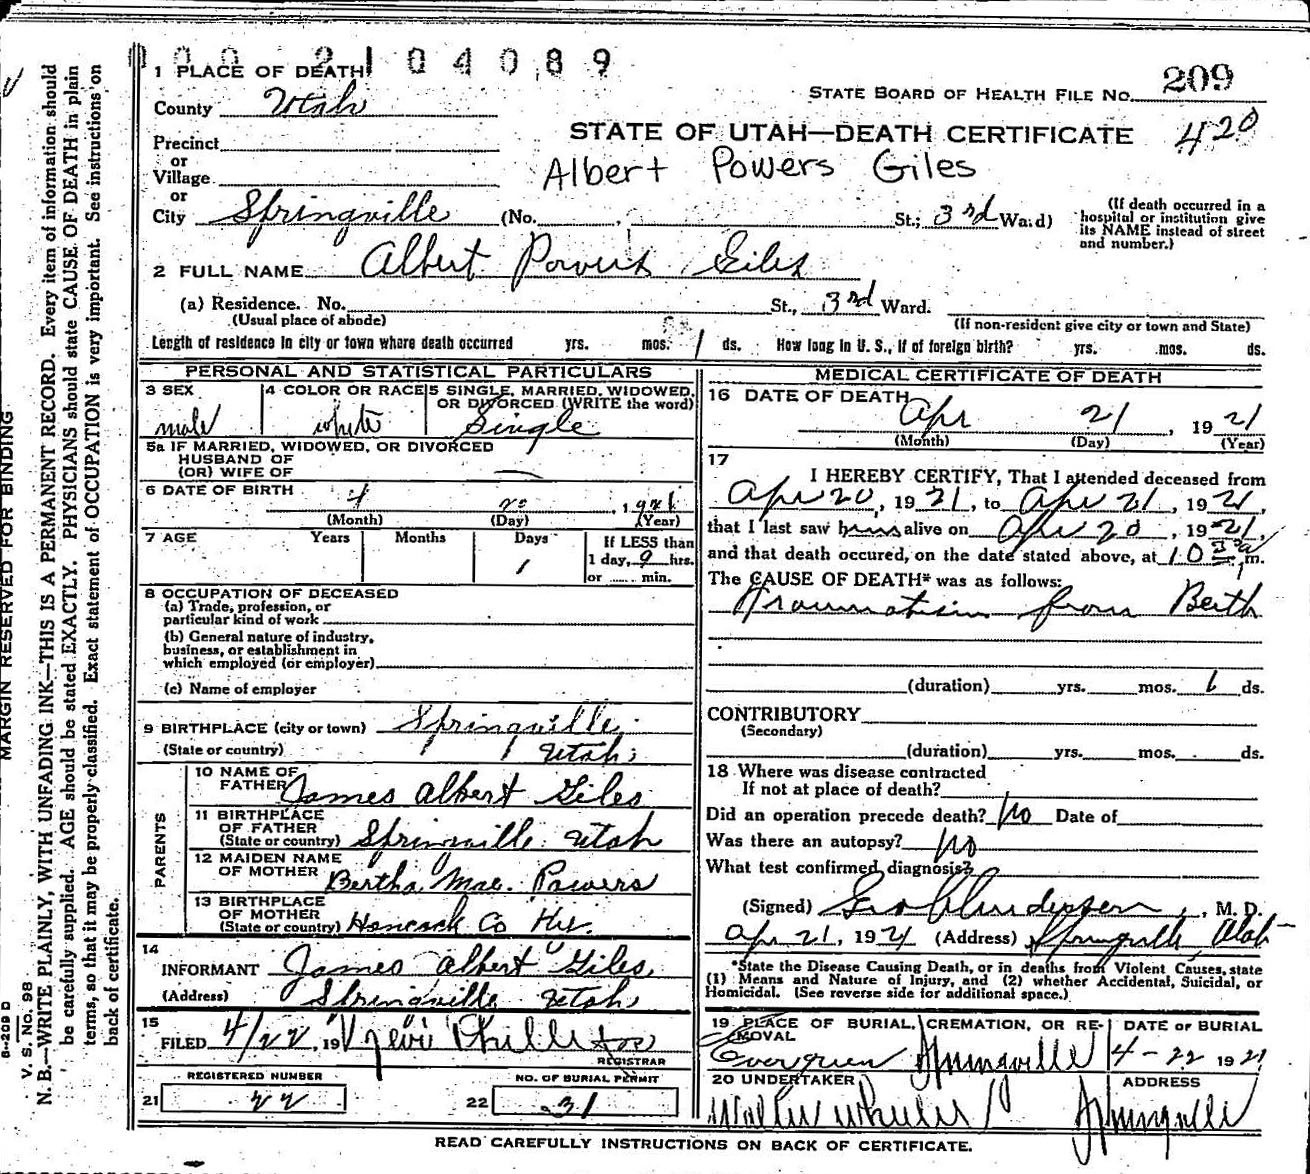 0 0 0 2 1 0 4 0 8 9
1 PLACE OF DEATH
County Utah
STATE BOARD OF HEALTH FILE NO. 209
STATE OF UTAH—DEATH CERTIFICATE 420
Precinct
or
Village
Albert Powers Giles
or
City Springville (No. , St.; 3rd Ward)
(If death occurred in a
hospital or institution give
its NAME instead of street
and number.)
2 FULL NAME Albert Powers Giles
(a) Residence. No. St., 3rd Ward.
(Usual place of abode)
(If non-resident give city or town and State)
Length of residence in city or town where death occurred yrs. mos. 1 ds. How long in U. S., if of foreign birth? yrs. mos. ds.
PERSONAL AND STATISTICAL PARTICULARS
3 SEX
male
4 COLOR OR RACE
white
5 SINGLE, MARRIED, WIDOWED,
OR DIVORCED (WRITE the word)
Single
5a IF MARRIED, WIDOWED, OR DIVORCED
HUSBAND OF
(OR) WIFE OF —
6 DATE OF BIRTH 4 20, 1921
(Month) (Day) (Year)
7 AGE Years Months Days
1
If LESS than
1 day, 9 hrs.
or ...... min.
8 OCCUPATION OF DECEASED
(a) Trade, profession, or
particular kind of work
(b) General nature of industry,
business, or establishment in
which employed (or employer)
(c) Name of employer
9 BIRTHPLACE (city or town) Springville,
(State or country) Utah
PARENTS
10 NAME OF
FATHER James Albert Giles
11 BIRTHPLACE
OF FATHER
(State or country) Springville Utah
12 MAIDEN NAME
OF MOTHER Bertha Mae. Powers
13 BIRTHPLACE
OF MOTHER
(State or country) Hancock Co
14
INFORMANT James Albert Giles
(Address) Springville Utah
15
FILED 4/22, 19
REGISTRAR
REGISTERED NUMBER
21 22
NO. OF BURIAL PERMIT
22 31
MEDICAL CERTIFICATE OF DEATH
16 DATE OF DEATH
Apr 21, 1921
(Month) (Day) (Year)
17
I HEREBY CERTIFY, That I attended deceased from
Apr 20, 1921, to Apr 21, 1921,
that I last saw him alive on Apr 20, 1921,
and that death occured, on the date stated above, at 10 m.
The CAUSE OF DEATH* was as follows:
Traumatism from Berth
(duration) yrs. mos. 1 ds.
CONTRIBUTORY
(Secondary)
(duration) yrs. mos. ds.
18 Where was disease contracted
If not at place of death?
Did an operation precede death? No Date of
Was there an autopsy? No
What test confirmed diagnosis?
(Signed) Geo Anderson, M. D.
Apr 21, 1921 (Address) Springville Utah
*State the Disease Causing Death, or in deaths from Violent Causes, state
(1) Means and Nature of Injury, and (2) whether Accidental, Suicidal, or
Homicidal. (See reverse side for additional space.)
19 PLACE OF BURIAL, CREMATION, OR RE-
MOVAL
Evergreen Springville
DATE OF BURIAL
4-22 1921
20 UNDERTAKER
Walter Wheeler
ADDRESS
Springville
READ CAREFULLY INSTRUCTIONS ON BACK OF CERTIFICATE.
MARGIN RESERVED FOR BINDING
V. S. NO. 98
N. B.—WRITE PLAINLY, WITH UNFADING INK—THIS IS A PERMANENT RECORD. Every item of information should
be carefully supplied. AGE should be stated EXACTLY. PHYSICIANS should state CAUSE OF DEATH in plain
terms, so that it may be properly classified. Exact statement of OCCUPATION is very important. See instructions on
back of certificate.